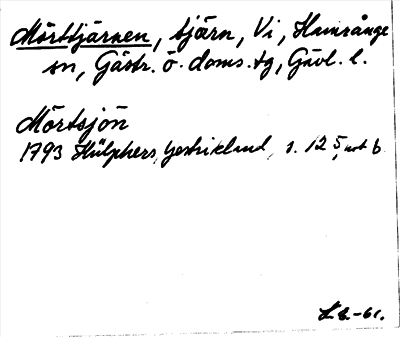 Mörttjärnen, tjärn, Vi, Hamrånge
sn, Gästr. ö. doms. tg, Gävl. l.
Mörtsjön
1793 Hülphers, Gestrikland, s. 125, not b